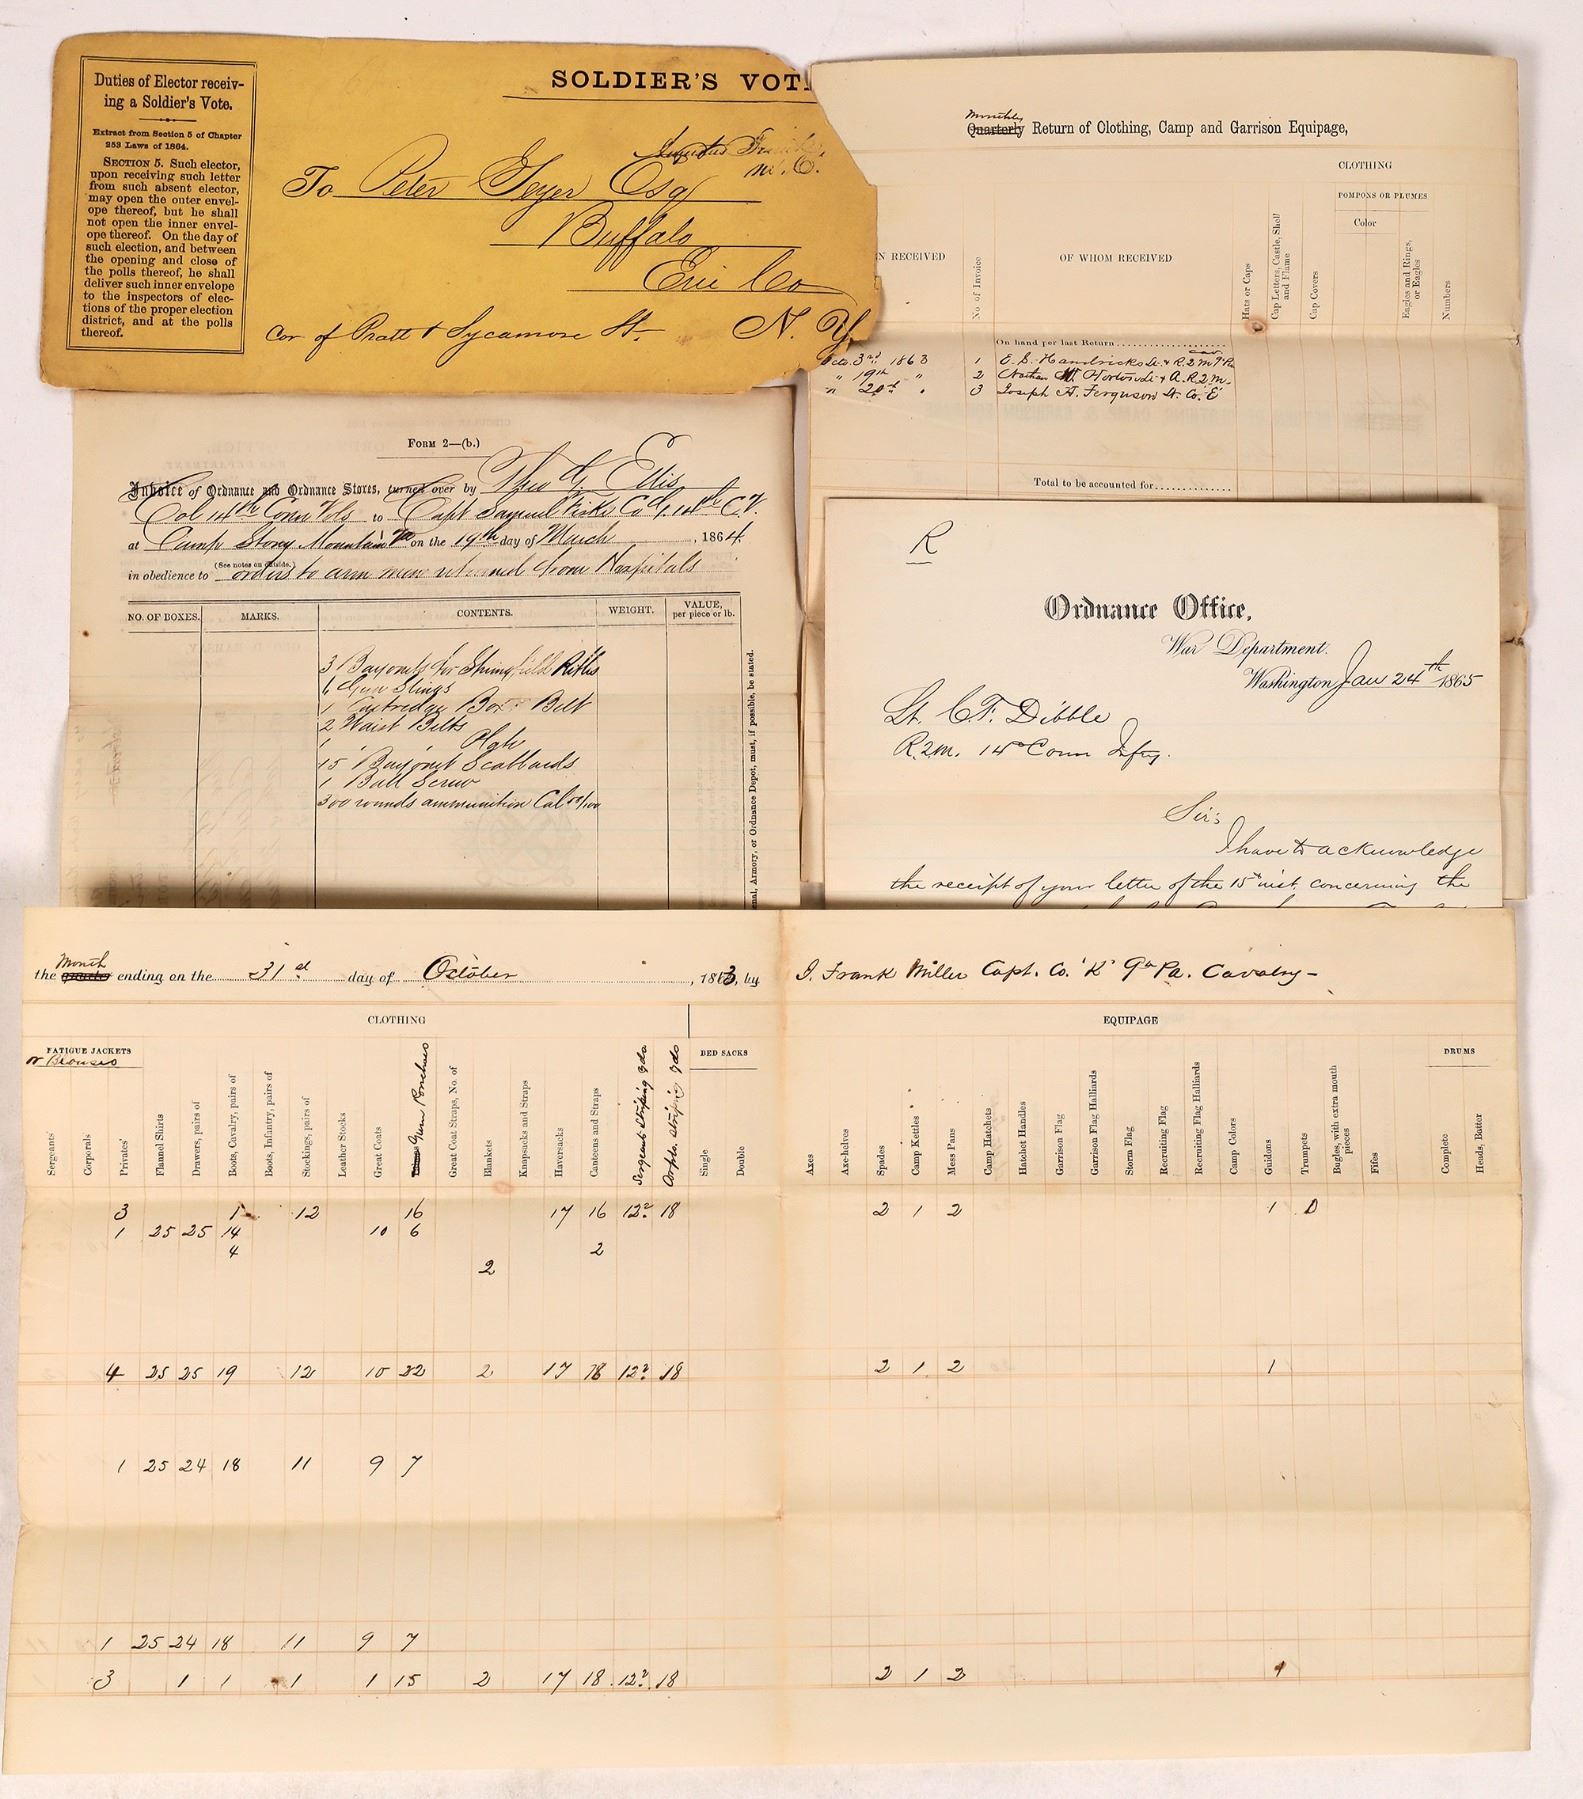 Duties of Elector receiv-
ing a Soldier's Vote.
Extract from Section 5 of Chapter
253 Laws of 1864.
SECTION 5. Such elector,
upon receiving such letter
from such absent elector,
may open the outer envel-
ope thereof, but he shall
not open the inner envel-
ope thereof. On the day of
such election, and between
the opening and close of
the polls thereof, he shall
deliver such inner envelope
to the inspectors of elec-
tions of the proper election
district, and at the polls
thereof.
SOLDIER'S VOT
To Peter Esq
Buffalo
Erie Co
Cor of Pratt & Sycamore St. N. Y.
Monthly
Quarterly Return of Clothing, Camp and Garrison Equipage,
CLOTHING
POMPONS OR PLUMES
Color
N RECEIVED
No of Invoice
OF WHOM RECEIVED
Hats or Caps
Cap Letters, Castle, Shell and Flame
Cap Covers
Eagles and Rings, or Eagles
Numbers
On hand per last Return
Octo. 3rd 1863 1 E. S. Hendricks Lt. & R.2.M.
" 19th " 2 Nathan W. Horton Lt. & A.R.2.M.
" 20th " 3 Joseph H. Ferguson Lt. Co. E
Total to be accounted for
FORM 2—(b.)
Invoice of Ordnance and Ordnance Stores, turned over by Theo G. Ellis
Col 14th Conn Vols to Capt Samuel Fiske Co G, 14th C.V.
at Camp Stony Mountain Va on the 19th day of March, 1864.
(See notes on outside.)
in obedience to orders to arm men returned from Hospitals
NO. OF BOXES. MARKS. CONTENTS. WEIGHT. VALUE, per piece or lb.
3 Bayonets for Springfield Rifles
6 Gun Slings
1 Cartridge Box Belt
2 Waist Belts
1 " " Plate
15 Bayonet Scabbards
1 Ball Screw
300 rounds ammunition Cal 58/100
enal, Armory, or Ordnance Depot, must, if possible, be stated.
R
Ordnance Office,
War Department.
Washington Jan 24th 1865
Lt. C. F. Dibble
R.2.M. 14th Conn Infy.
Sir;
I have to acknowledge
the receipt of your letter of the 15th inst. concerning the
the Month quarter ending on the 31st day of October, 1863, by J. Frank Miller Capt. Co. 'K' 9th Pa. Cavalry—
CLOTHING
EQUIPAGE
FATIGUE JACKETS
or Blouses
BED SACKS
DRUMS
Sergeants'
Corporals'
Privates'
Flannel Shirts
Drawers, pairs of
Boots, Cavalry, pairs of
Boots, Infantry, pairs of
Stockings, pairs of
Leather Stocks
Great Coats
Gum Ponchoes
Great Coat Straps, No. of
Blankets
Knapsacks and Straps
Haversacks
Canteens and Straps
Sergeant Striping yds
Corpls. Striping yds
Single
Double
Axes
Axe-helves
Spades
Camp Kettles
Mess Pans
Camp Hatchets
Hatchet Handles
Garrison Flag
Garrison Flag Halliards
Storm Flag
Recruiting Flag
Recruiting Flag Halliards
Camp Colors
Guidons
Trumpets
Bugles, with extra mouth pieces
Fifes
Complete
Heads, Batter
3 1 12 16 17 16 12½ 18 2 1 2 1 0
1 25 25 14 10 6
4 2
2
4 25 25 19 12 10 22 2 17 18 12½ 18 2 1 2 1
1 25 24 18 11 9 7
1 25 24 18 11 9 7
3 1 1 1 1 15 2 17 18 12½ 18 2 1 2 1